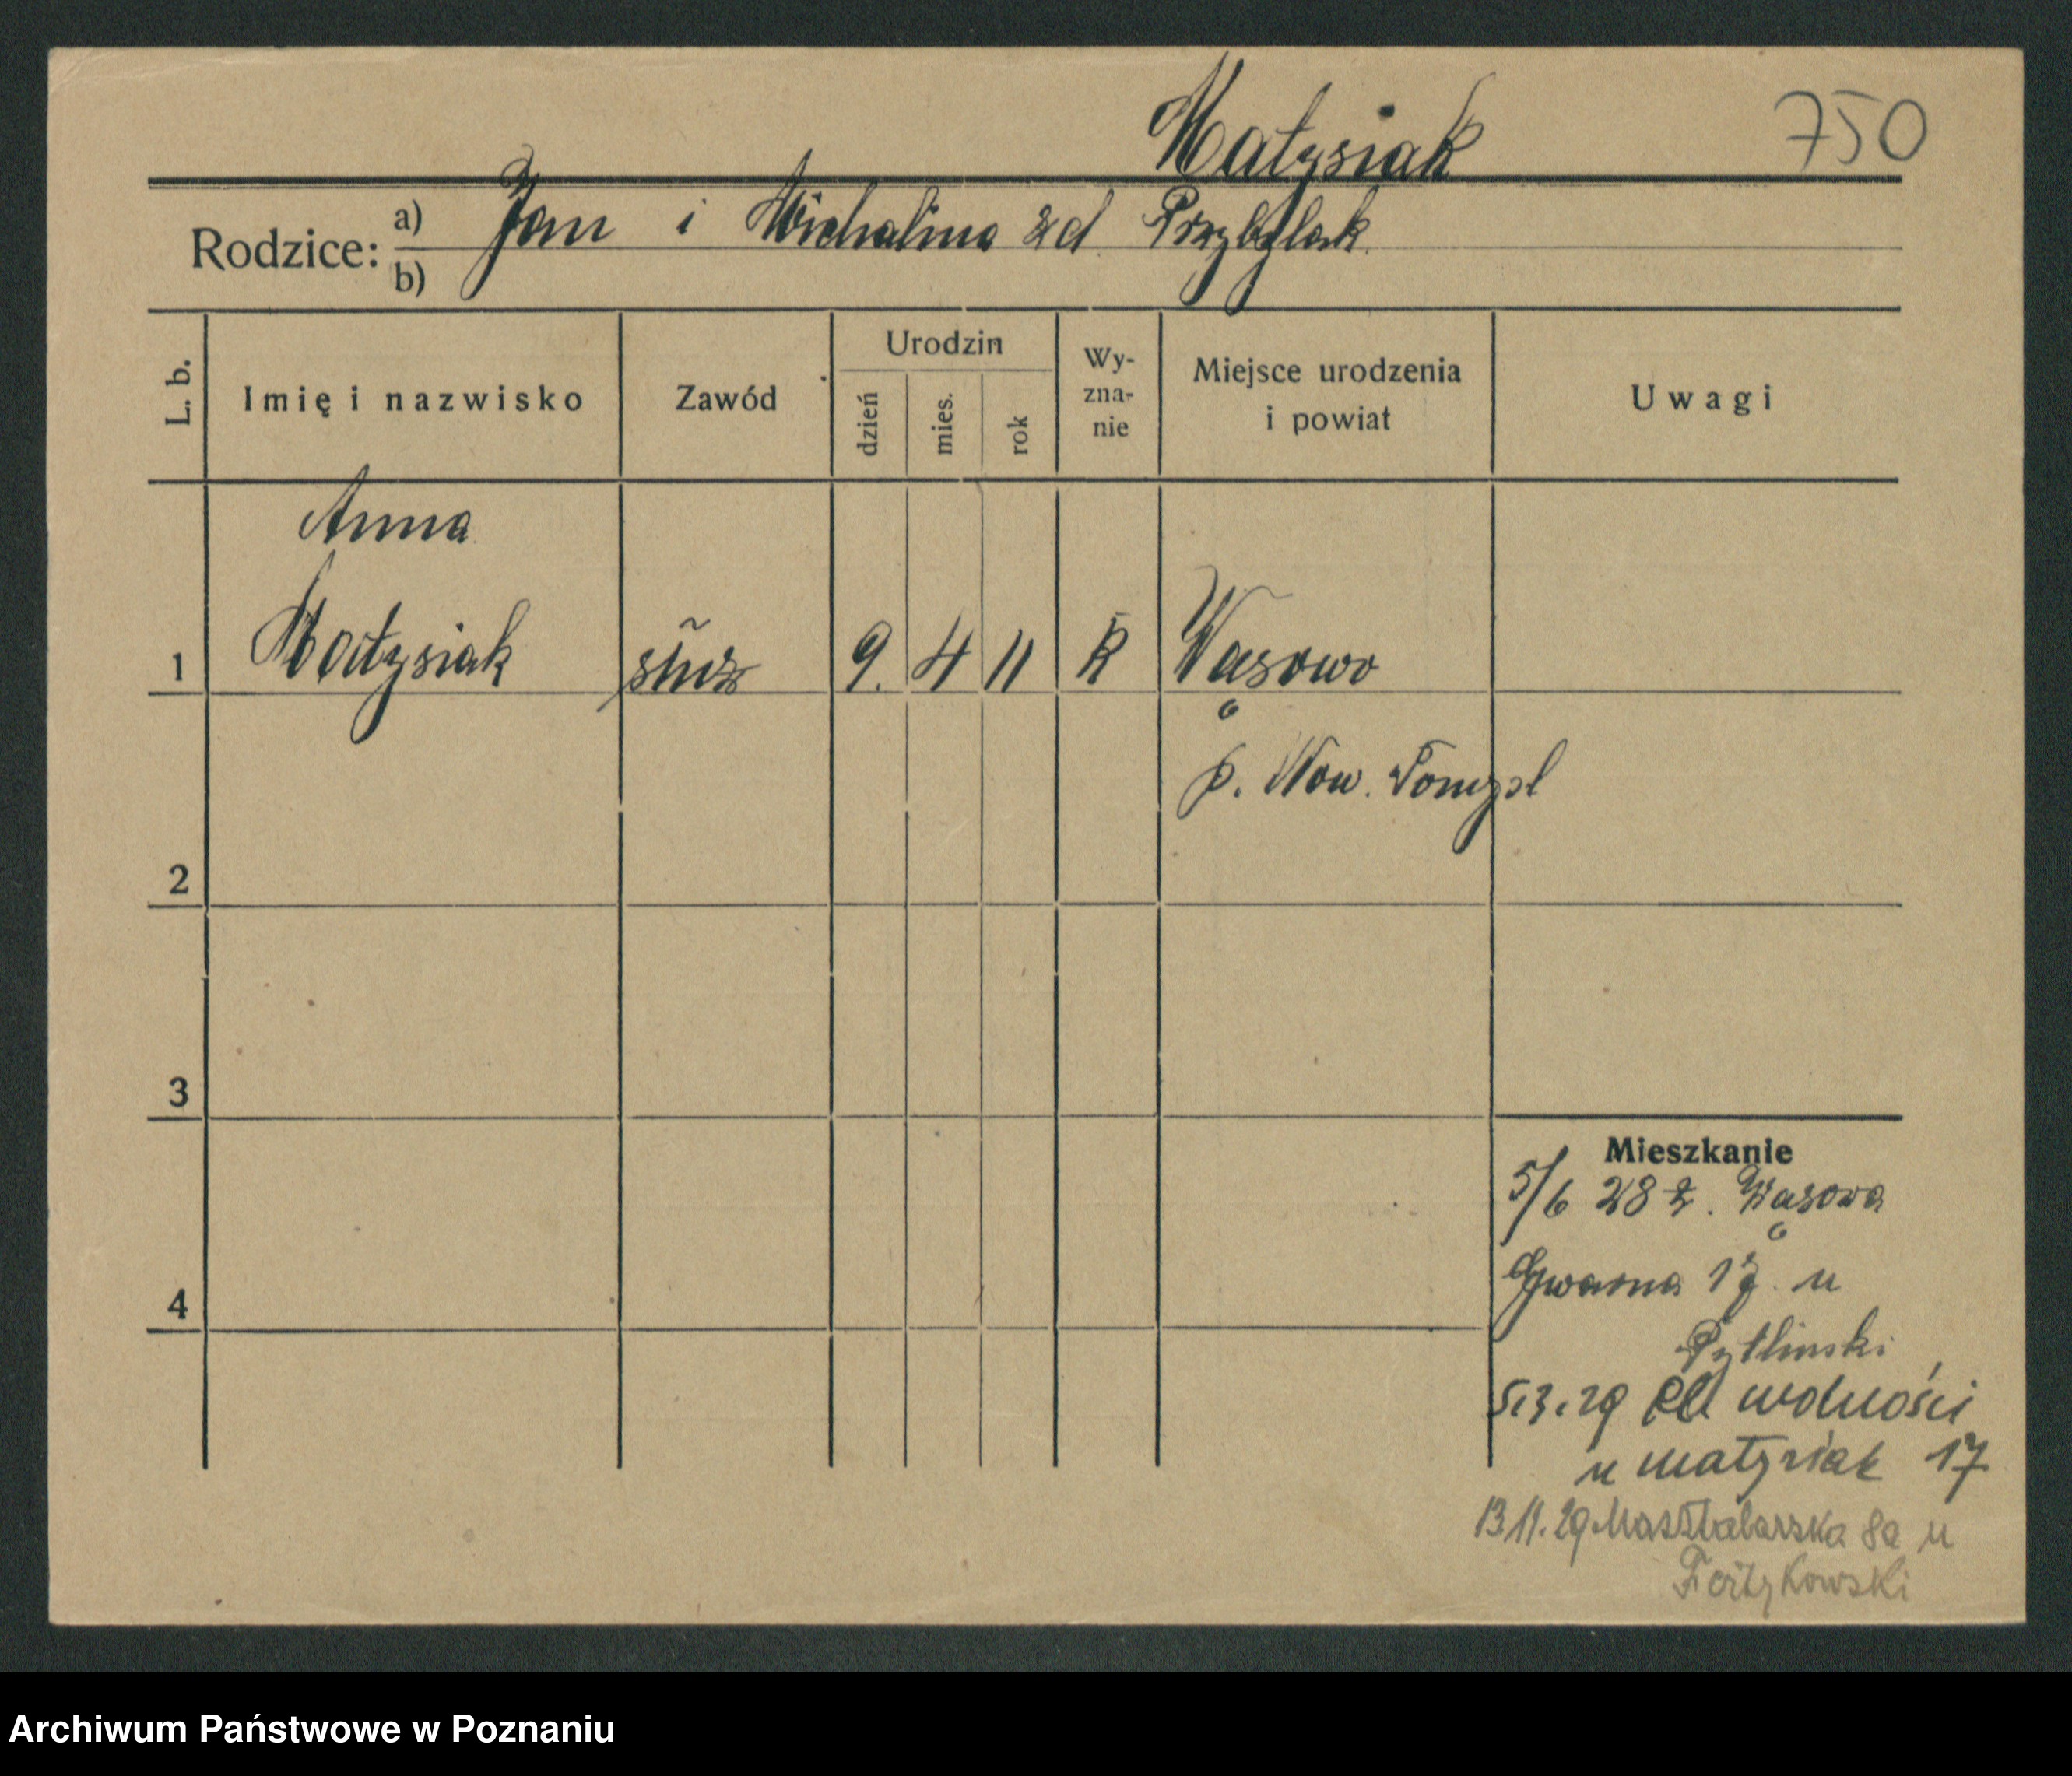 Matysiak 750
Rodzice: a) Jan i Michalina zd Przybylak
b)
L. b. Imię i nazwisko Zawód Urodzin dzień mies. rok Wy-zna-nie Miejsce urodzenia i powiat Uwagi
Anna
1 Matysiak służ 9. 4 11 K Wąsowo
p. Now. Tomyśl
2
3
Mieszkanie
5/6 28 z. Wąsowa
4 Gwarna 17 u
Pytlinski
5.3.29 Pl wolności
u matysiak 17
13 11. 29 Masztalarska 8a u
Archiwum Państwowe w Poznaniu